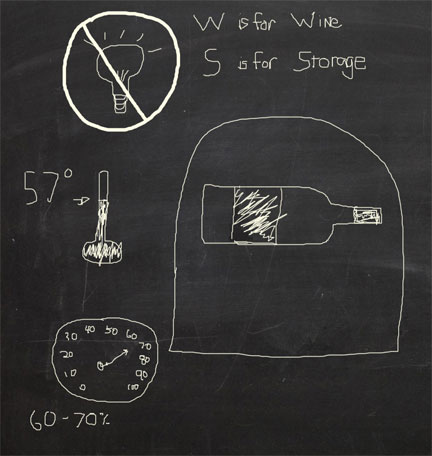 W is for Wine
S is for Storage
57°
0 10 20 30 40 50 60 70 80 90 100
60-70%